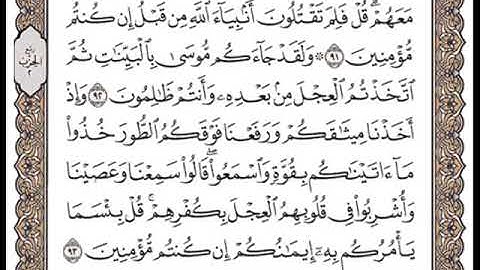 مَعَهُمْ ۗ قُلْ فَلِمَ تَقْتُلُونَ أَنۢبِيَآءَ ٱللَّهِ مِن قَبْلُ إِن كُنتُم
مُّؤْمِنِينَ ۝٩١ ۞ وَلَقَدْ جَآءَكُم مُّوسَىٰ بِٱلْبَيِّنَـٰتِ ثُمَّ
ٱتَّخَذْتُمُ ٱلْعِجْلَ مِنۢ بَعْدِهِۦ وَأَنتُمْ ظَـٰلِمُونَ ۝٩٢ وَإِذْ
أَخَذْنَا مِيثَـٰقَكُمْ وَرَفَعْنَا فَوْقَكُمُ ٱلطُّورَ خُذُوا۟
مَآ ءَاتَيْنَـٰكُم بِقُوَّةٍ وَٱسْمَعُوا۟ ۖ قَالُوا۟ سَمِعْنَا وَعَصَيْنَا
وَأُشْرِبُوا۟ فِى قُلُوبِهِمُ ٱلْعِجْلَ بِكُفْرِهِمْ ۚ قُلْ بِئْسَمَا
يَأْمُرُكُم بِهِۦٓ إِيمَـٰنُكُمْ إِن كُنتُم مُّؤْمِنِينَ ۝٩٣
ربع
الحزب
٢